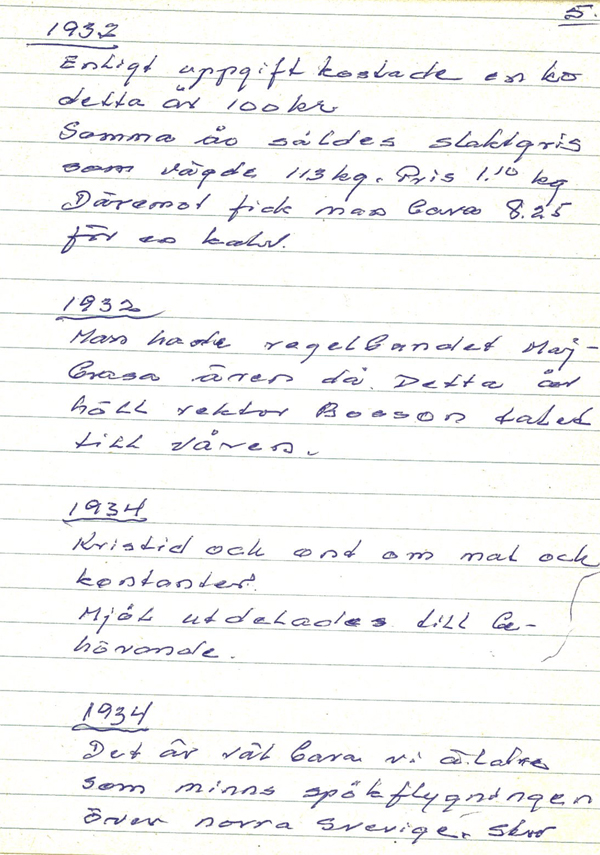 5.
1932
Enligt uppgift kostade en ko
detta år 100 kr
Samma år såldes slaktgris
som vägde 113 kg. Pris 1.10 kg
Däremot fick man bara 8.25
för en kalv.
1932
Man hade regelbundet Maj-
brasa åren då. Detta år
höll rektor Bosson talet
till våren.
1934
Kristid och ont om mat och
kontanter.
Mjöl utdelades till be-
hövande.
1934
Det är väl bara vi äldre
som minns spökflygningen
över norra Sverige.